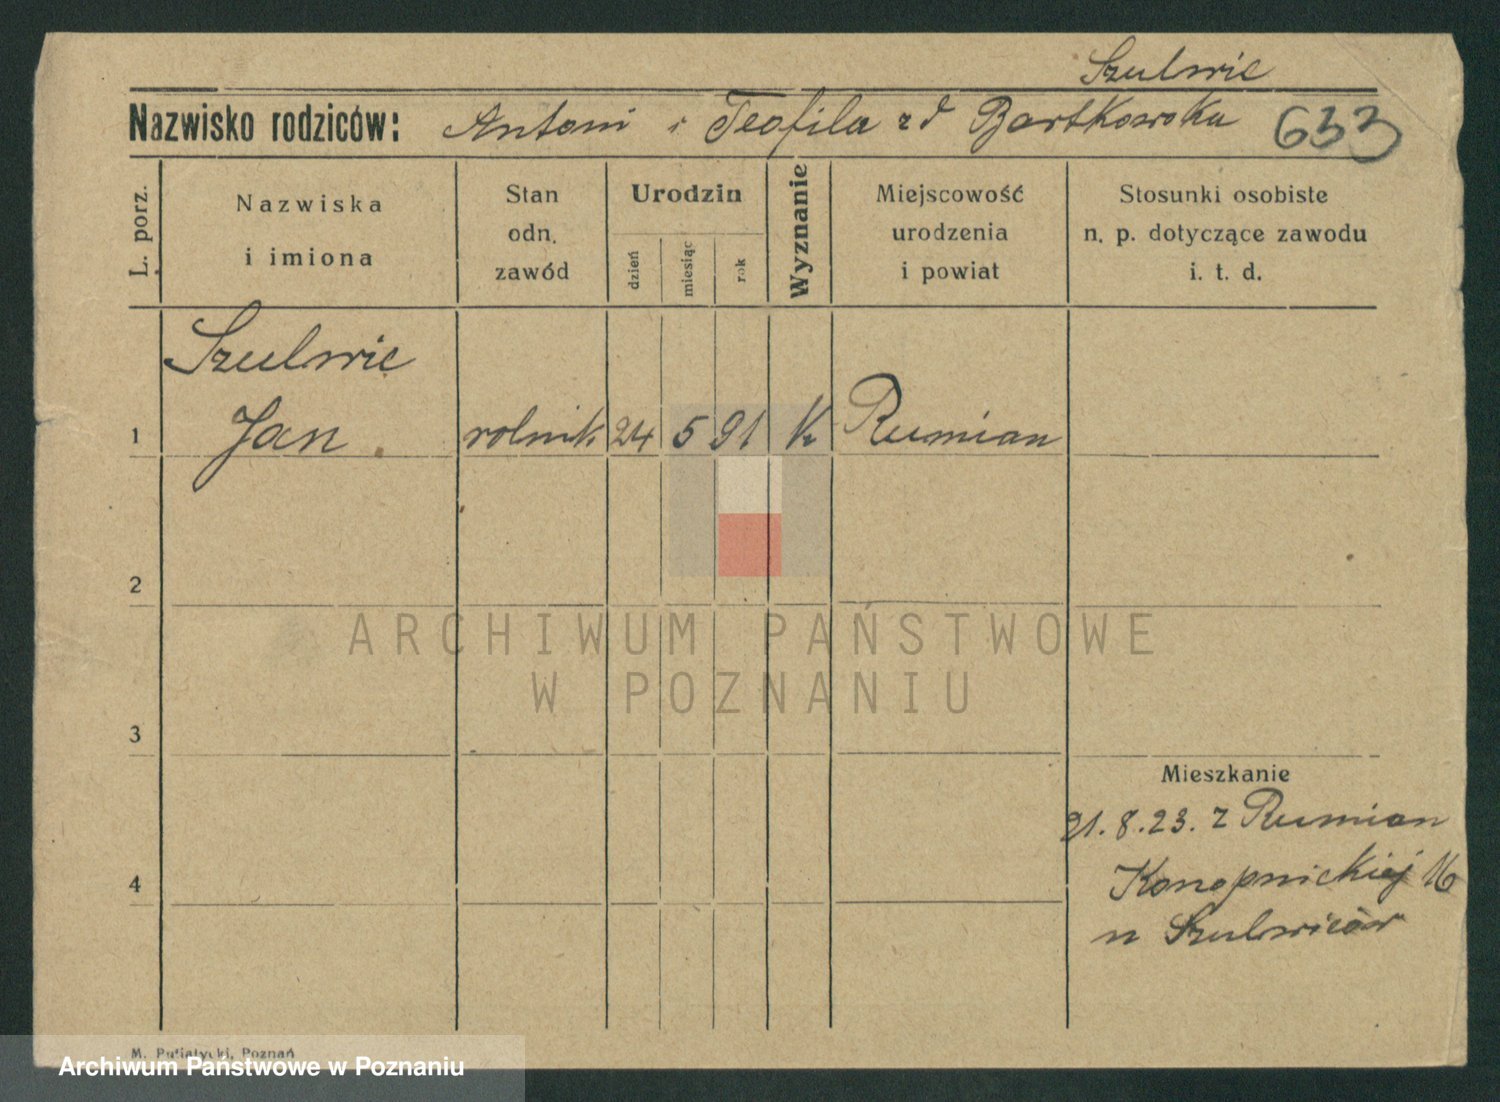 Szulwic
Nazwisko rodziców: Antoni i Teofila zd Bartkowska 633
L. porz.
Nazwiska
i imiona
Stan
odn.
zawód
Urodzin
dzień
miesiąc
rok
Wyznanie
Miejscowość
urodzenia
i powiat
Stosunki osobiste
n. p. dotyczące zawodu
i. t. d.
Szulwic
1 Jan rolnik 24 5 91 K Rumian
2
3
4
Mieszkanie
21.8.23. z Rumian
Konopnickiej 16
u Szulwiców
ARCHIWUM PAŃSTWOWE
W POZNANIU
M. Putiatycki, Poznań
Archiwum Państwowe w Poznaniu